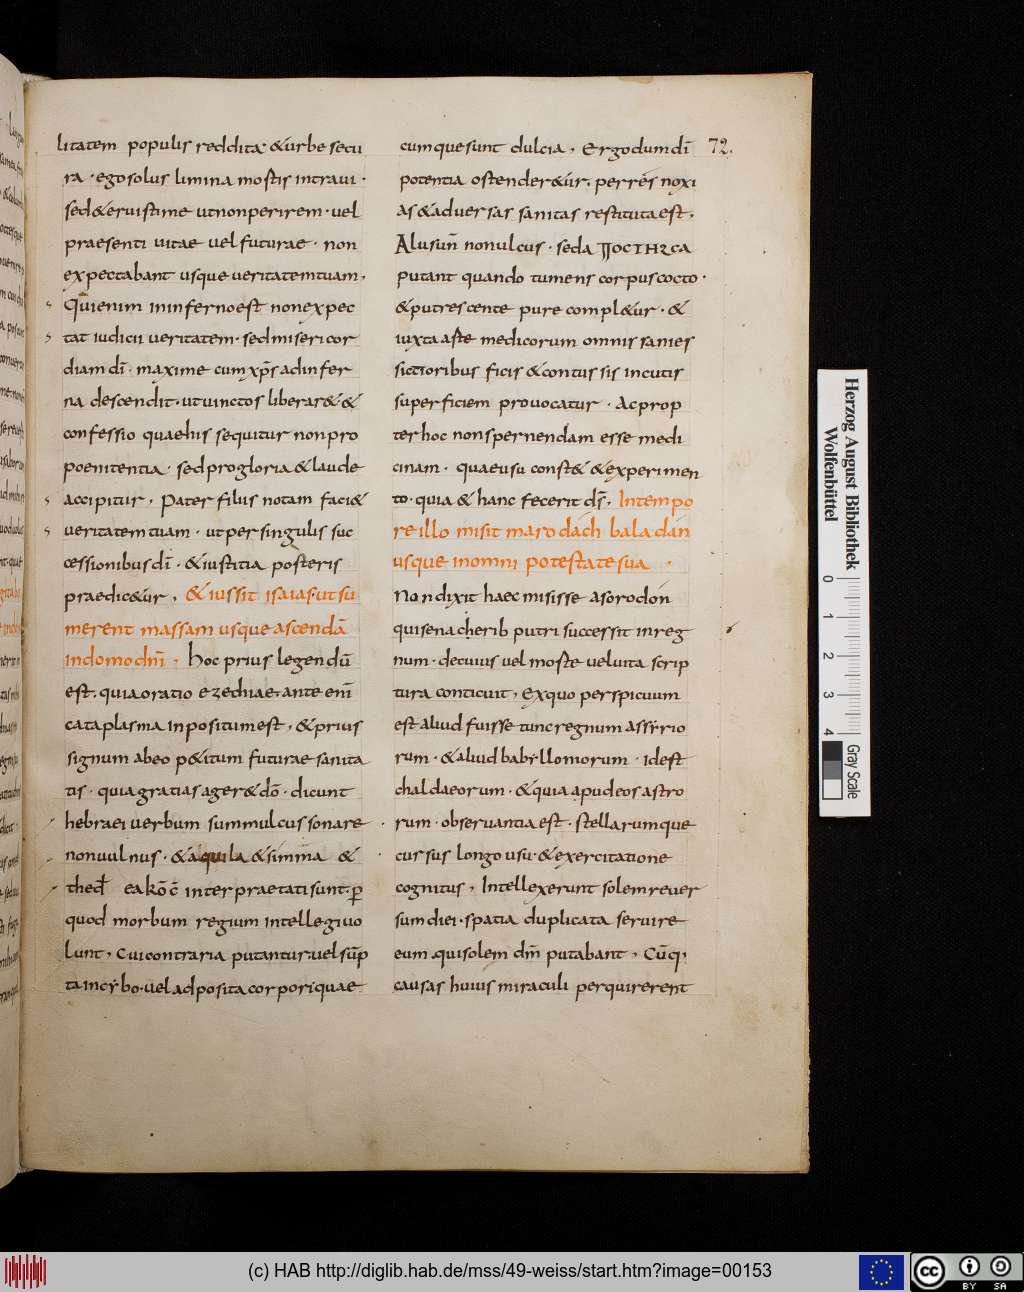 72.
litatem populis reddita & urbe secu
ra · ego solus limina mostis intravi ·
sed & eruisti me ut non perirem · vel
praesenti vitae vel futurae · non
expectabant usque veritatem tuam ·
Qui enim in inferno est non expec
tat iudicii veritatem · sed misericor
diam dī · maxime cum xp̄s ad infer
na descendit · ut vinctos liberar& &
confessio quae his sequitur non pro
poenitentia · sed pro gloria & laude
accipitur · Pater filiis notam faci&
veritatem tuam · ut per singulis suc
cessionibus dī · & iustitia posteris
praedic&ur · & iussit isaias ut su
merent massam usque ascendā
in domo dn̄i · hoc prius legendū
est · quia oratio ezechiae · ante enī
cataplasma inpositum est · & prius
signum abeo p&itum futurae sanita
tis · quia gratias ager& dō · dicunt
hebraei verbum summulcus sonare
non vulnus · & aquila & simma &
thed eakōc̄ interpraetati sunt · p
quod morbum regium intellegi vo
lunt · cui contraria putantur · vel sūp
ta in cybo · vel adposita corpori quae
cumque sunt dulcia · Ergo dum dī
potentia ostender&ur · per res noxi
as & adversas sanitas restituta est ·
Alu suīn non ulcus · sed a ΠΟCΤΗΖCΑ
putant quando tumens corpus cocto ·
& putrescente pure compl&ur · &
iuxta aste medicorum omnis sanies
sictioribus ficis & contussis in cutis
superficiem provocatur · Ac prop
ter hoc non spernendam esse medi
cinam · quae usu const& & experimen
to · quia & hanc fecerit ds̄ · In tempo
re illo misit marodach baladan
usque in omni potestate sua ·
Non dixit haec misisse asorodon
qui senacherib putri successit in reg
num · de cuius vel moste vel vita scrip
tura conticuit · Ex quo perspicuum
est aliud fuisse tunc regnum assyrio
rum · & aliud babyllomorum · Id est
chaldaeorum · & quia apud eos astro
rum · observantia est · stellarumque
cursus longo usu · & exercitatione
cognitus · Intellexerunt solem rever
sum diei · spatia duplicata servire
eum qui solem dm̄ putabant · Cūq;
causas huius miraculi perquirerent
Herzog August Bibliothek
Wolfenbüttel
0 1 2 3 4
Gray Scale
(c) HAB http://diglib.hab.de/mss/49-weiss/start.htm?image=00153
cc BY SA